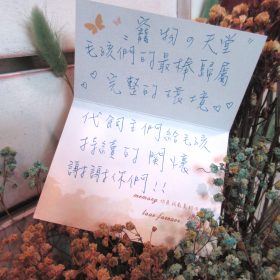 寵物の天堂
毛孩們的最棒歸屬
♡完整的環境♡
代飼主們給毛孩
持續的関懷～
謝謝你們!!
memory
love forever